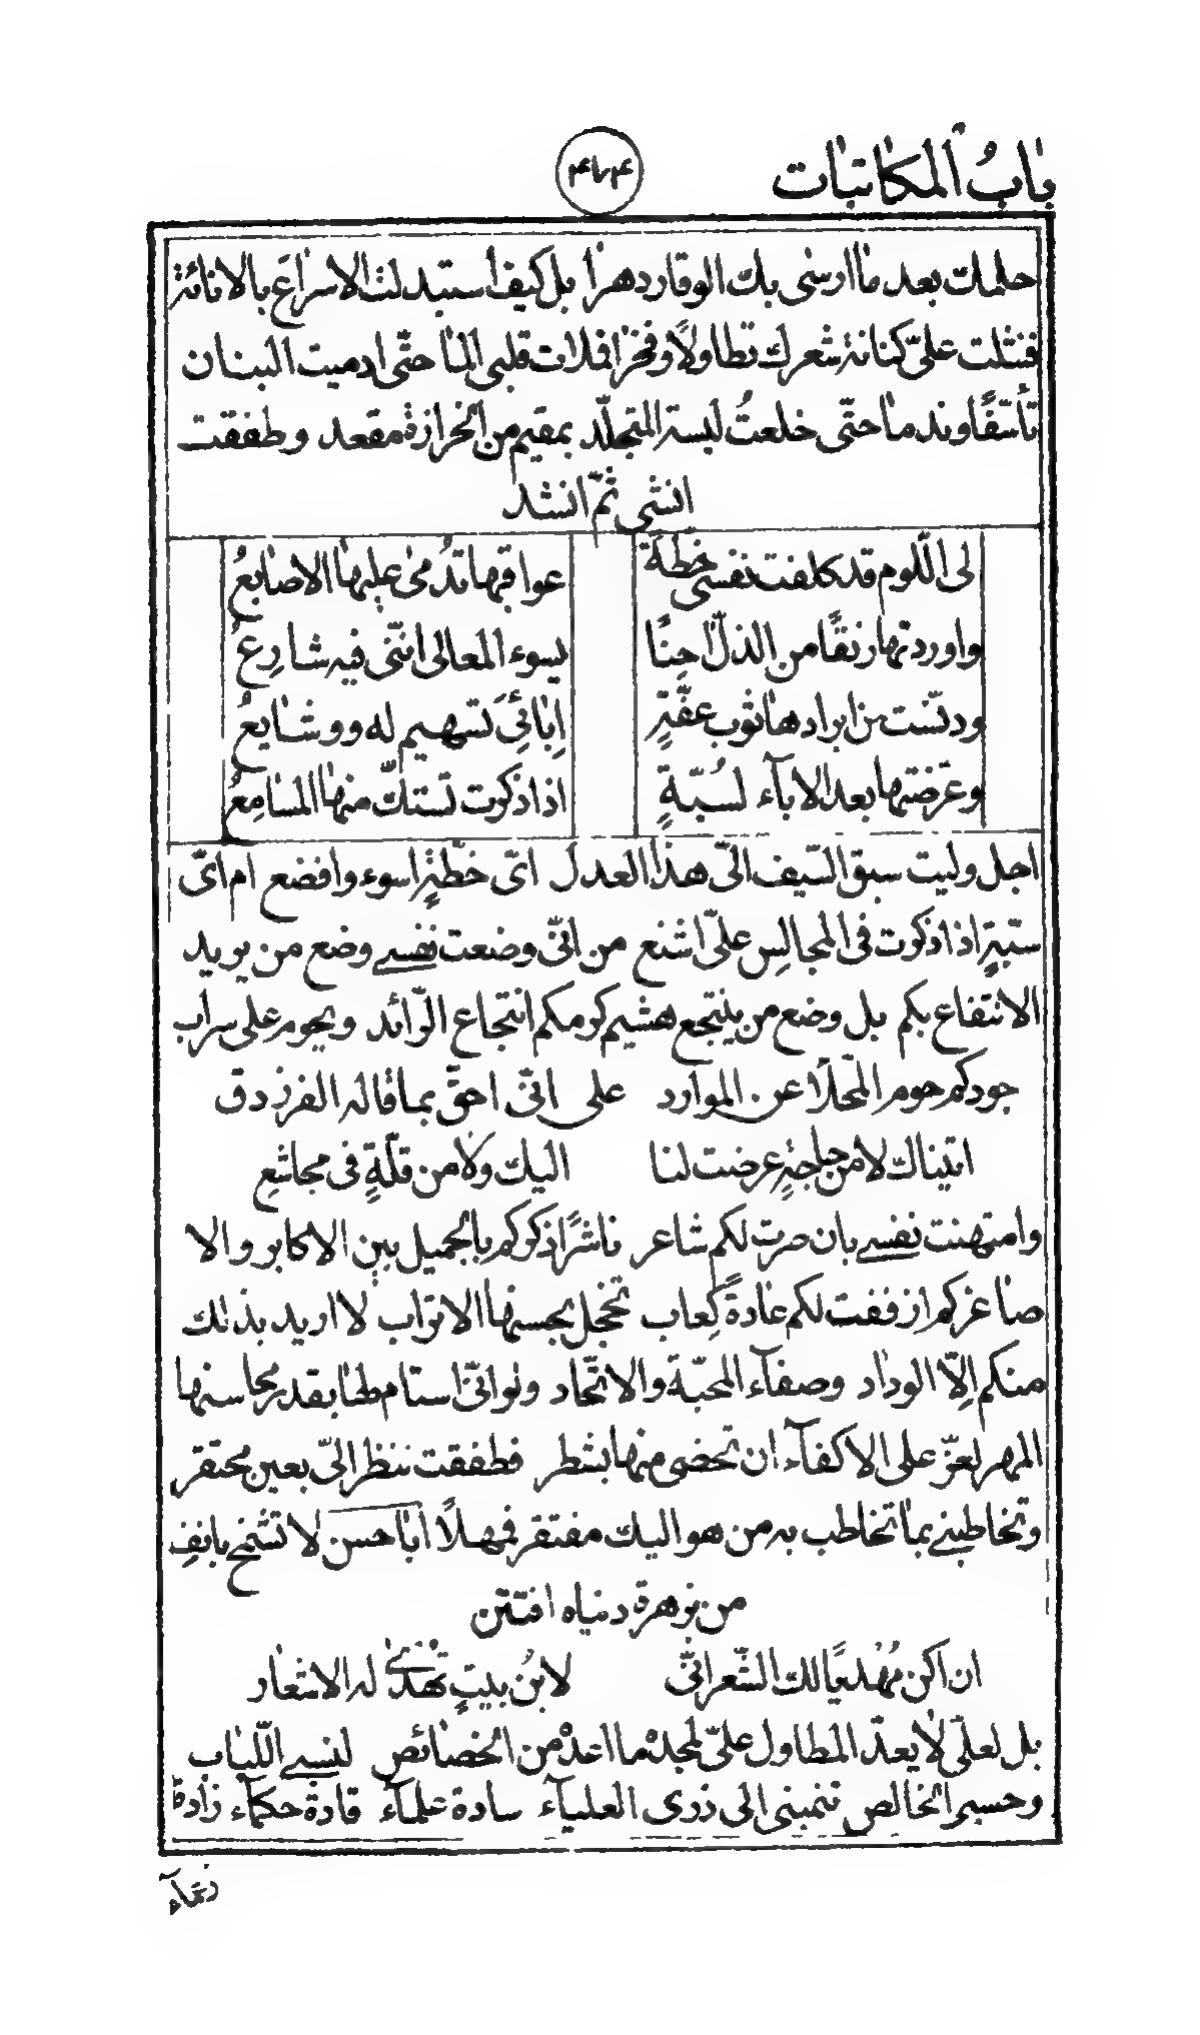 باب المكاتبات
حلمك بعد ما ارسى بك الوقار دهرا بل كيف استبدلت الاسراع بالاناة
فنثلت علىّ كنانة شعرك تطاولًا وفخرا فملات قلبى الما حتّى ادميت البنان
تأسّفًا وندما حتّى خلعتُ لبسة المتجلّد بمقيم من الحزازة مقعد وطفقت
انشى ثمّ انشد
لى اللّوم قد كلفت نفسى خطّة عواقبها تدمى عليها الاصابعُ
واوردتها رنقًا من الذلّ اجنًا يسوء المعالى انّنى فيه شارعُ
ودنّست من ابرادها ثوب عفّةٍ اِبائِىَ تسهيم له ووشايعُ
وعرّضتها بعد الاباء لسُبّةٍ اذا ذكرت تستكّ منها المسامعُ
اجل وليت سبق السّيف الىّ هذا العدل اىّ خطّةٍ اسوء وافضع ام اىّ
سبّةٍ اذا ذكرت فى المجالس علىّ اشنع من انّى وضعت نفسى وضع من يريد
الانتفاع بكم بل وضع من ينتجع هشيم كرمكم انتجاع الرّائد ويحوم على سراب
جودكم حوم المحلّا عن الموارد على انّى احقّ بما قاله الفرزدق
اتيناك لا من حاجةٍ عرضت لنا اليك ولا من قلّةٍ فى مجاشع
وامتهنت نفسى بان صرت لكم شاعر ناشرًا ذكركم بالجميل بين الاكابر والا
صاغركم ازففت لكم غادةً كعاب تخجل بحسنها الاتراب لا اريد بذلك
منكم اِلّا الوداد وصفآء المحبّة والاتّحاد ولو انّى استام طلبا بقدر محاسنها
المهر لعزّ على الاكفآء ان تحضى منها بشطر فطفقت تنظر الىّ بعين محتقر
وتخاطبنى بما تخاطب به من هو اليك مفتقر فمهلًا ابا حسن لا تشمخ بانفِ
من بزهرة دنياه افتتن
ان اكن مُهديًا لك الشّعر انّى لابنُ بيتٍ تُهدى له الاشعار
بل لعلّى لا يعدّ المطاول علىّ لمجده ما اعدّه من الخصائص لنسبى اللّباب
وحسبى الخالص تنمينى الى ذرى العليآء سادة علمآء قادة حكمآء زادة
زعمآء